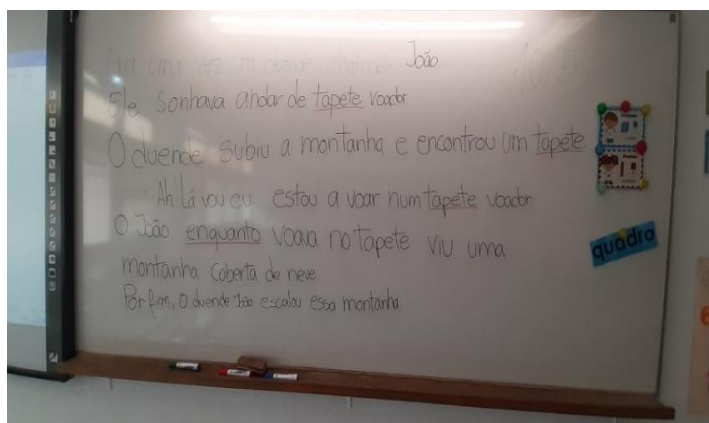 Era uma vez um duende chamado João
Ele sonhava andar de tapete voador
O duende subiu a montanha e encontrou um tapete
Ah Lá vou eu estou a voar num tapete voador
O João enquanto voava no tapete viu uma
montanha coberta de neve
Por fim, o duende João escalou essa montanha
quadro